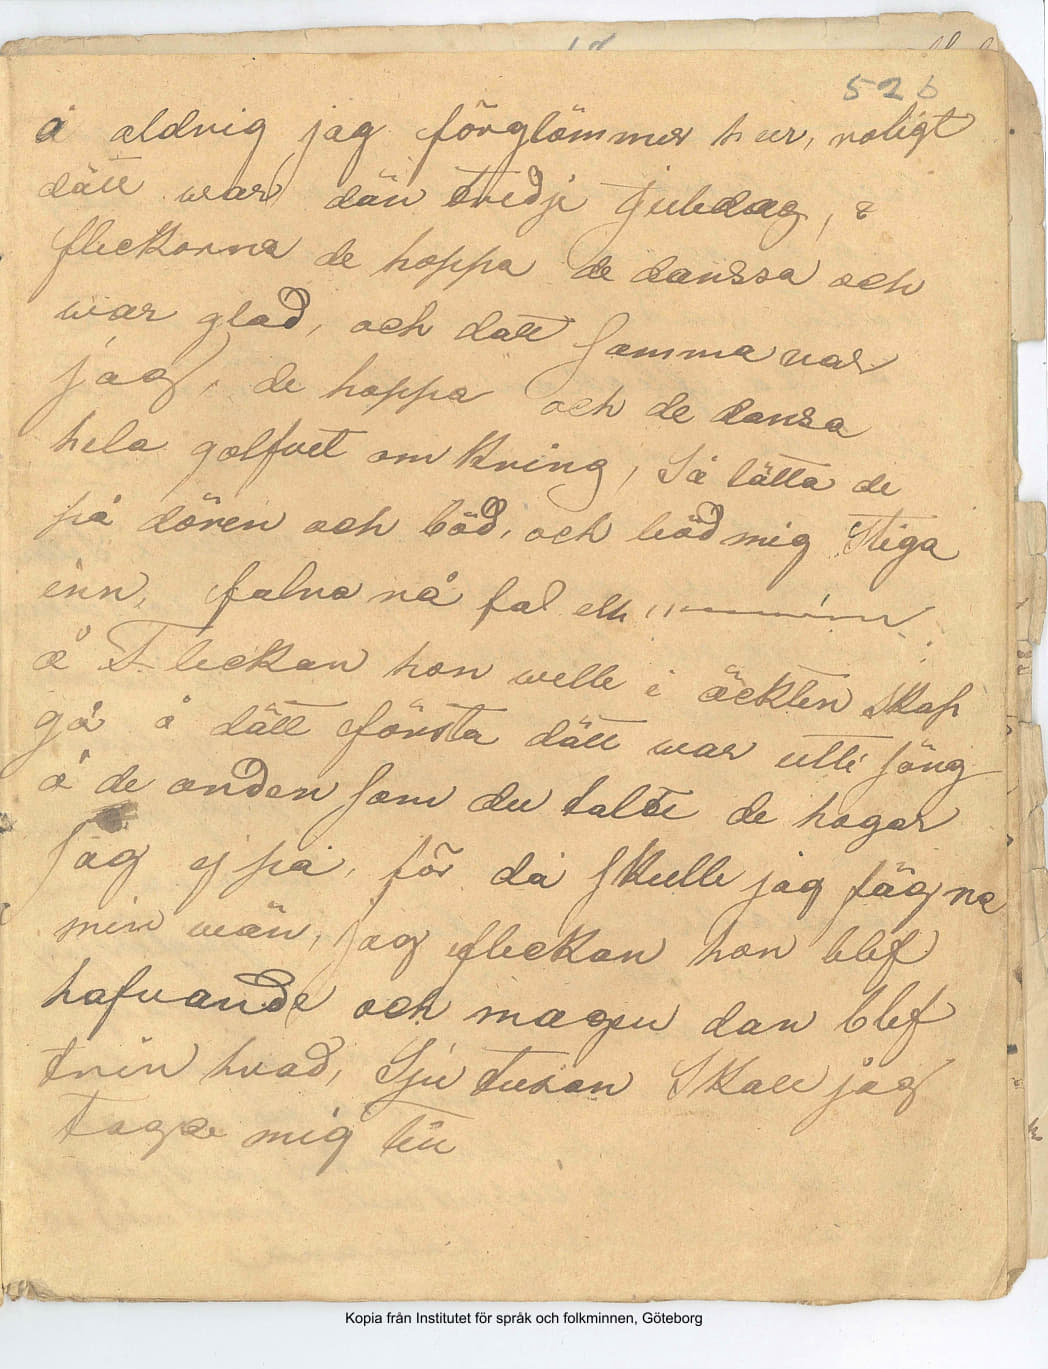 526
å aldrig jag förglömmer hur, roligt
dätt war dän tredje Juledag, &
flickorna de hoppa de danssa och
war glad, och datt Samma var
jag, de hoppa och de dansa
hela golfvet omkring, Så lätta de
på dören och böd, och böd mig Stiga
inn, falra rå fal
å Flickan hon welle i äckten Skap
gå å dätt första dätt war utti Säng
å de anden Som du talte de hagar
Jag ej på, för då Skulle jag fägna
min wän, jag flickan hon blef
hafvande och magen dan blef
trin hvad, Sju tusan Skall jag
Taga mig till
Kopia från Institutet för språk och folkminnen, Göteborg